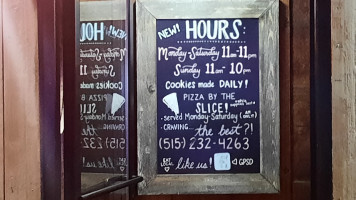 NEW! HOURS:
Monday-Saturday 11am-11pm
Sunday 11am-10pm
Cookies made DAILY!
PIZZA BY THE
SLICE!
served Monday-Saturday
CRAVING... the best?!
(515) 232-4263
like us! GPSD